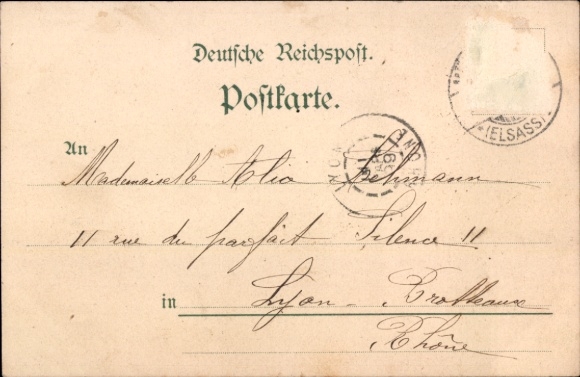 Deutsche Reichspost.
Postkarte.
(ELSASS)
An
Mademoiselle Alice Lehmann
11 rue du parfait Silence 11
in Lyon - Brotteaux
Rhône